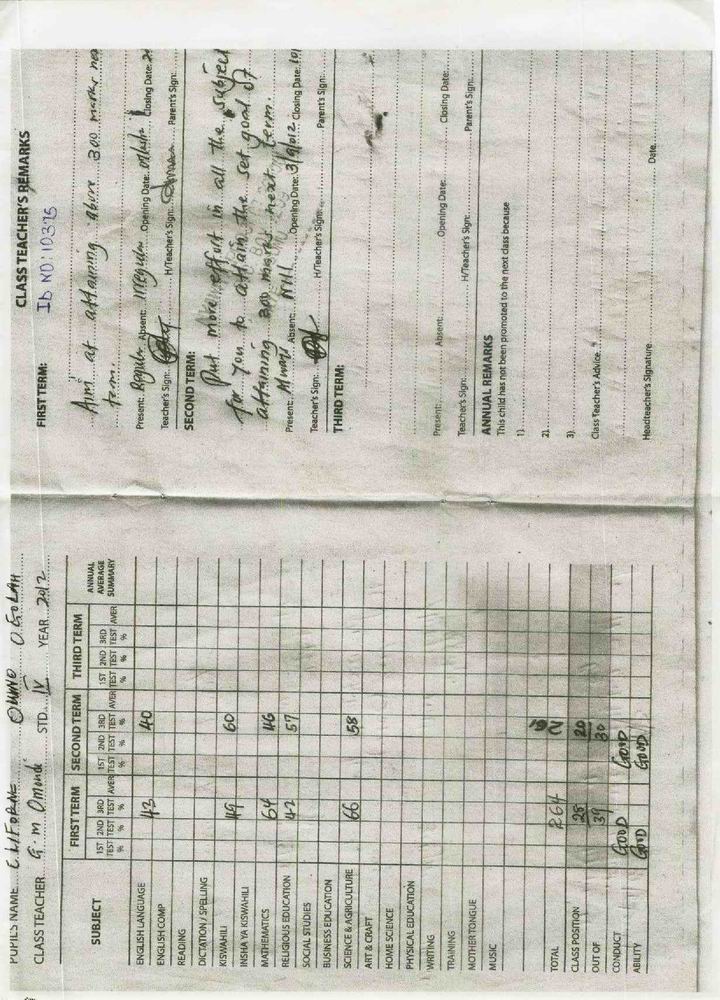 PUPIL'S NAME CLIFORNE OWINO OGOLAH
CLASS TEACHER G. M Omondi STD. IV YEAR 2012
SUBJECT FIRST TERM SECOND TERM THIRD TERM ANNUAL AVERAGE SUMMARY
1ST TEST % 2ND TEST % 3RD TEST % AVER 1ST TEST % 2ND TEST % 3RD TEST % AVER 1ST TEST % 2ND TEST % 3RD TEST % AVER
ENGLISH LANGUAGE 43 40
ENGLISH COMP
READING
DICTATION / SPELLING
KISWAHILI 49 60
INSHA YA KISWAHILI
MATHEMATICS 64 46
RELIGIOUS EDUCATION 42 57
SOCIAL STUDIES
BUSINESS EDUCATION
SCIENCE & AGRICULTURE 66 58
ART & CRAFT
HOME SCIENCE
PHYSICAL EDUCATION
WRITING
TRAINING
MOTHER TONGUE
MUSIC
TOTAL 264
CLASS POSITION 28 20
OUT OF 39 30
CONDUCT GOOD GOOD
ABILITY GOOD GOOD
CLASS TEACHER'S REMARKS
FIRST TERM: ID NO: 10375
Aim at attaining above 300 marks
term.
Present: Regular Absent: Irregular Opening Date: Closing Date:
Teacher's Sign: H/Teacher's Sign: Parent's Sign:
SECOND TERM:
Put more effort in all the subject
for you to attain the set goal of
attaining 300 marks next term.
Present: Absent: Nil Opening Date: 3/9/012 Closing Date:
Teacher's Sign: H/Teacher's Sign: Parent's Sign:
THIRD TERM:
Present: Absent: Opening Date: Closing Date:
Teacher's Sign: H/Teacher's Sign: Parent's Sign:
ANNUAL REMARKS
This child has not been promoted to the next class because
1)
2)
3)
Class Teacher's Advice
Headteacher's Signature Date